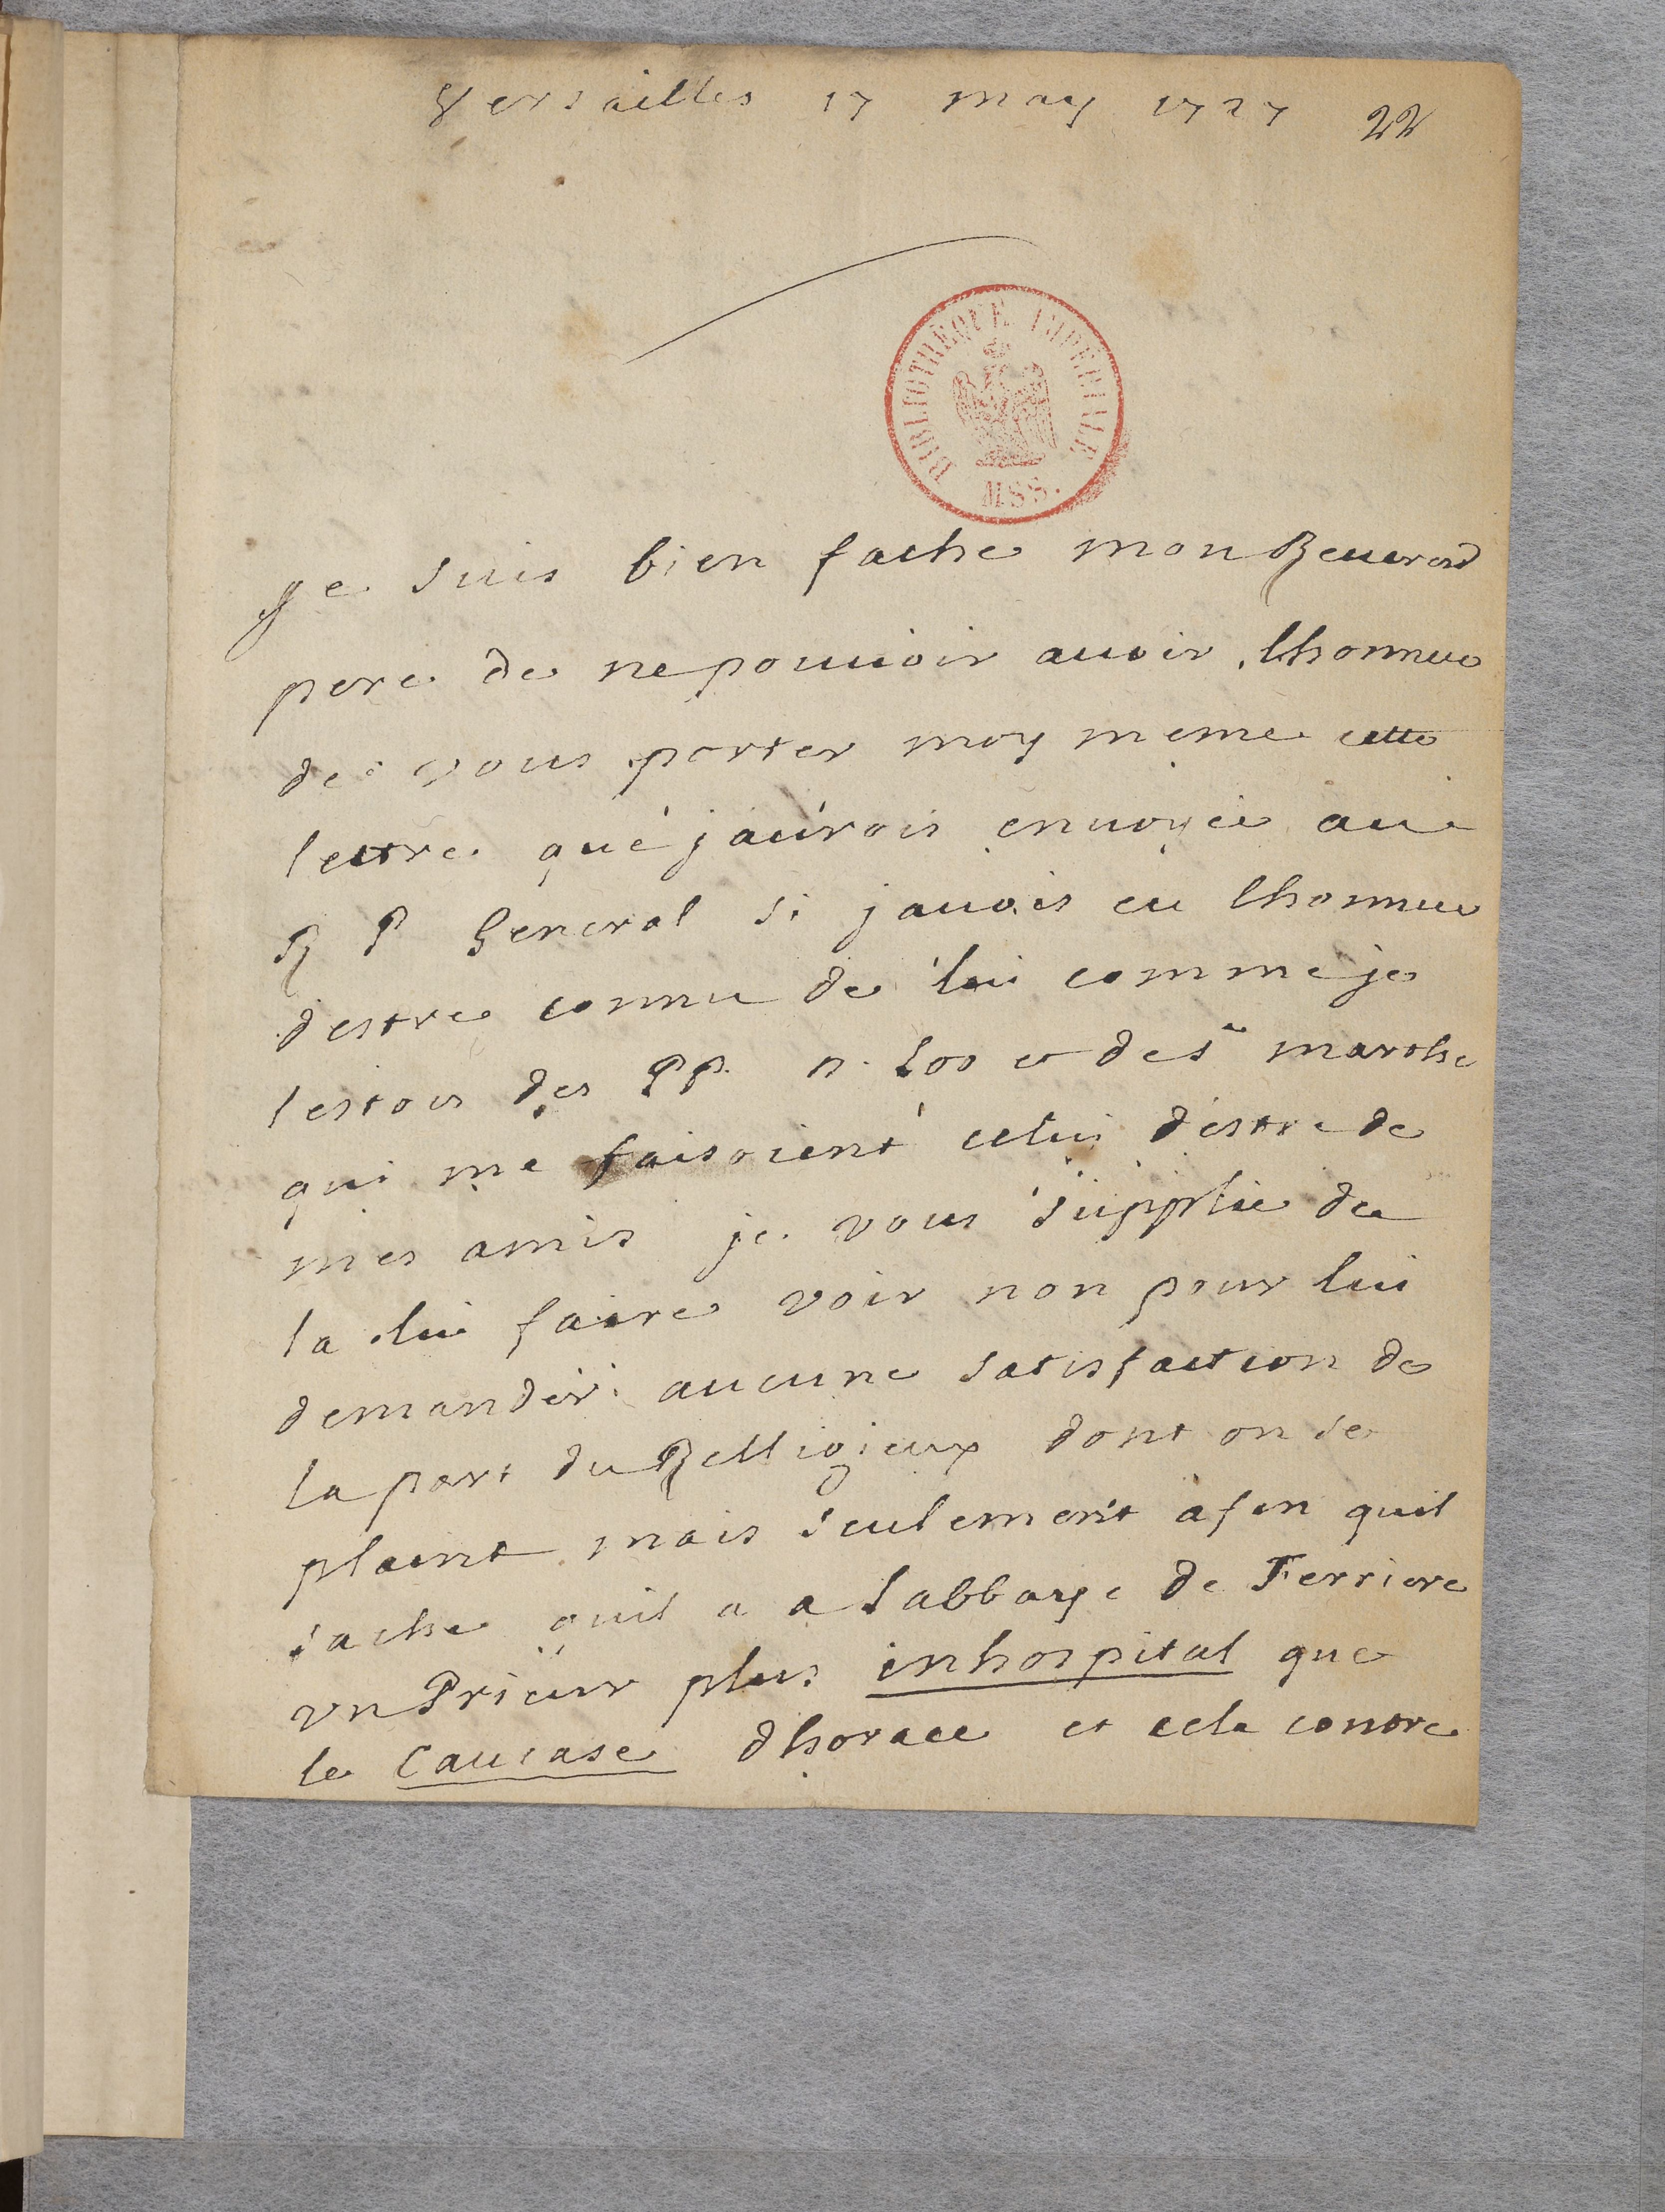 Versailles 17 may 1727 22
BIBLIOTHÈQUE IMPÉRIALE
MSS.
Je suis bien fache mon Reuerend
pere de ne pouuoir auoir lhonneur
de vous porter moy meme cette
lettre que jaurois enuoyée au
R P General si jauois eu lhonneur
destre connu de lui comme je
lestois des PP. Loo et de ste marthe
qui me faisoient celui destre de
mes amis je vous supplie de
la lui faire voir non pour lui
demander aucune satisfaction de
la part du Relligieux dont on se
plaint mais seulement afin quil
sache quil a a labbaye de Ferriere
vn Prieur plus inhospital que
le Caucase dhorace et cela contre